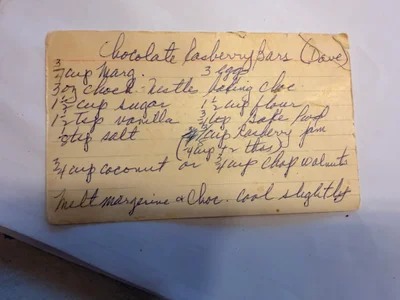 Chocolate Rasberry Bars (Dave)
3/4 cup Marg. 3 eggs
3 oz chock. Nestles baking choc
1 1/2 cup sugar 1 1/2 cup flour
1 1/2 tsp vanilla 3/4 tsp Bake Powd
1/2 tsp salt cup rasberry jam
(1/4 cup + this)
3/4 cup coconut or 3/4 cup chop walnuts
Melt margerine & Choc. cool slightly